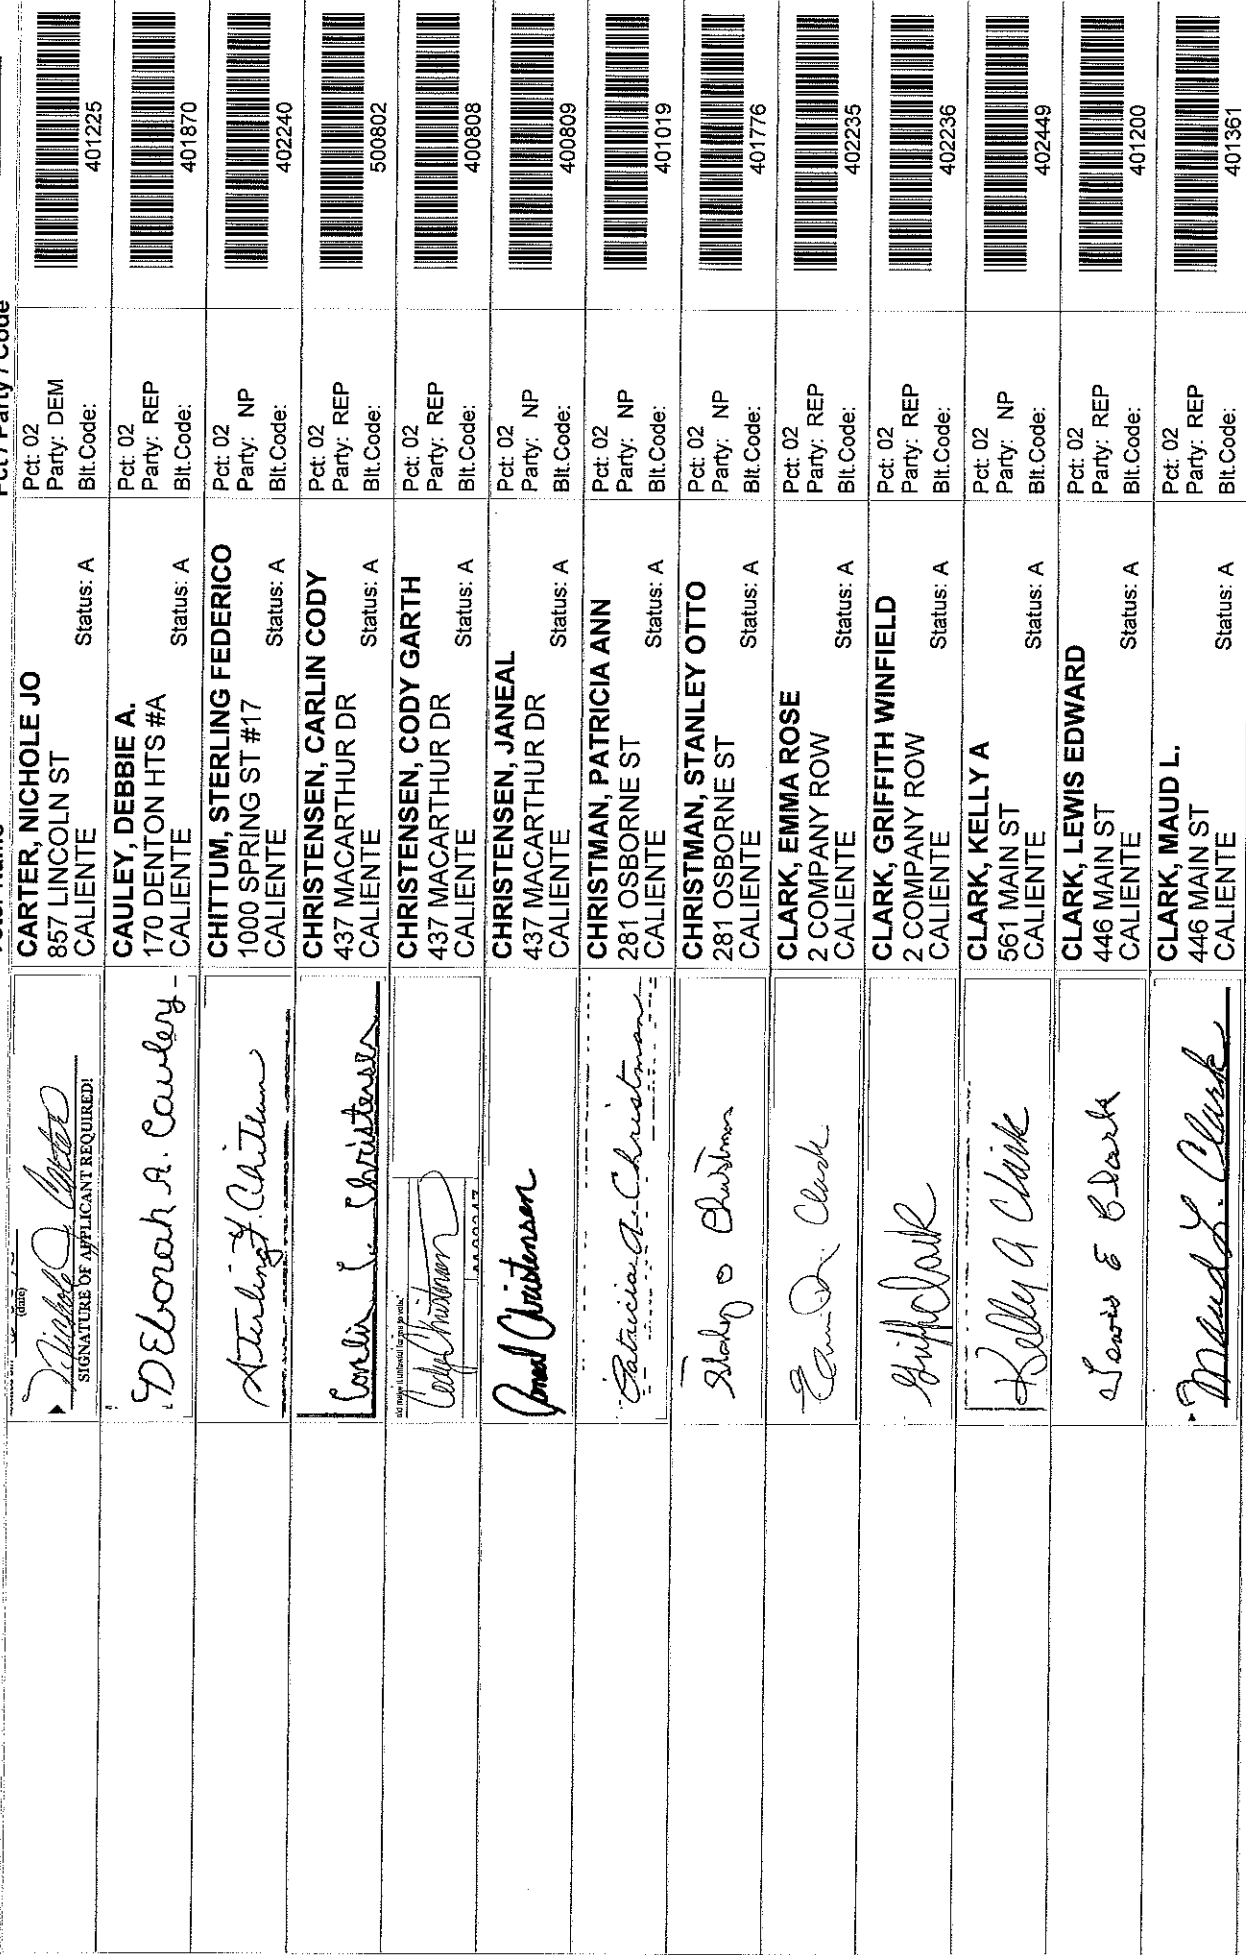 Voter Name
Pct / Party / Code
(date)
Nichole J Carter
SIGNATURE OF APPLICANT REQUIRED!
CARTER, NICHOLE JO
857 LINCOLN ST
CALIENTE
Status: A
Pct: 02
Party: DEM
Blt.Code:
401225
DEborah A. Cauley
CAULEY, DEBBIE A.
170 DENTON HTS #A
CALIENTE
Status: A
Pct: 02
Party: REP
Blt.Code:
401870
Sterling F. Chittum
CHITTUM, STERLING FEDERICO
1000 SPRING ST #17
CALIENTE
Status: A
Pct: 02
Party: NP
Blt.Code:
402240
Carlin C. Christensen
CHRISTENSEN, CARLIN CODY
437 MACARTHUR DR
CALIENTE
Status: A
Pct: 02
Party: REP
Blt.Code:
500802
Cody Christensen
CHRISTENSEN, CODY GARTH
437 MACARTHUR DR
CALIENTE
Status: A
Pct: 02
Party: REP
Blt.Code:
400808
Janeal Christensen
CHRISTENSEN, JANEAL
437 MACARTHUR DR
CALIENTE
Status: A
Pct: 02
Party: NP
Blt.Code:
400809
Patricia A. Christman
CHRISTMAN, PATRICIA ANN
281 OSBORNE ST
CALIENTE
Status: A
Pct: 02
Party: NP
Blt.Code:
401019
Stanley O Christman
CHRISTMAN, STANLEY OTTO
281 OSBORNE ST
CALIENTE
Status: A
Pct: 02
Party: NP
Blt.Code:
401776
Emma R. Clark
CLARK, EMMA ROSE
2 COMPANY ROW
CALIENTE
Status: A
Pct: 02
Party: REP
Blt.Code:
402235
Griff Clark
CLARK, GRIFFITH WINFIELD
2 COMPANY ROW
CALIENTE
Status: A
Pct: 02
Party: REP
Blt.Code:
402236
Kelly A Clark
CLARK, KELLY A
561 MAIN ST
CALIENTE
Status: A
Pct: 02
Party: NP
Blt.Code:
402449
Lewis E Clark
CLARK, LEWIS EDWARD
446 MAIN ST
CALIENTE
Status: A
Pct: 02
Party: REP
Blt.Code:
401200
Maud L. Clark
CLARK, MAUD L.
446 MAIN ST
CALIENTE
Status: A
Pct: 02
Party: REP
Blt.Code:
401361